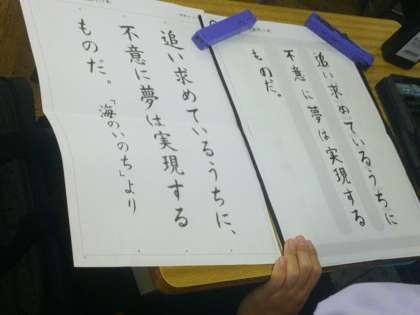 追い求めているうちに、
不意に夢は実現する
ものだ。
「海のいのち」より
追い求めているうちに
不意に夢は実現する
ものだ。